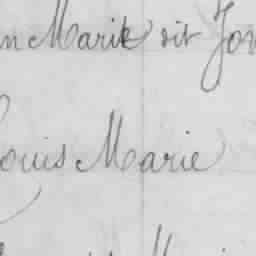 n Marie dit Jo
Louis Marie